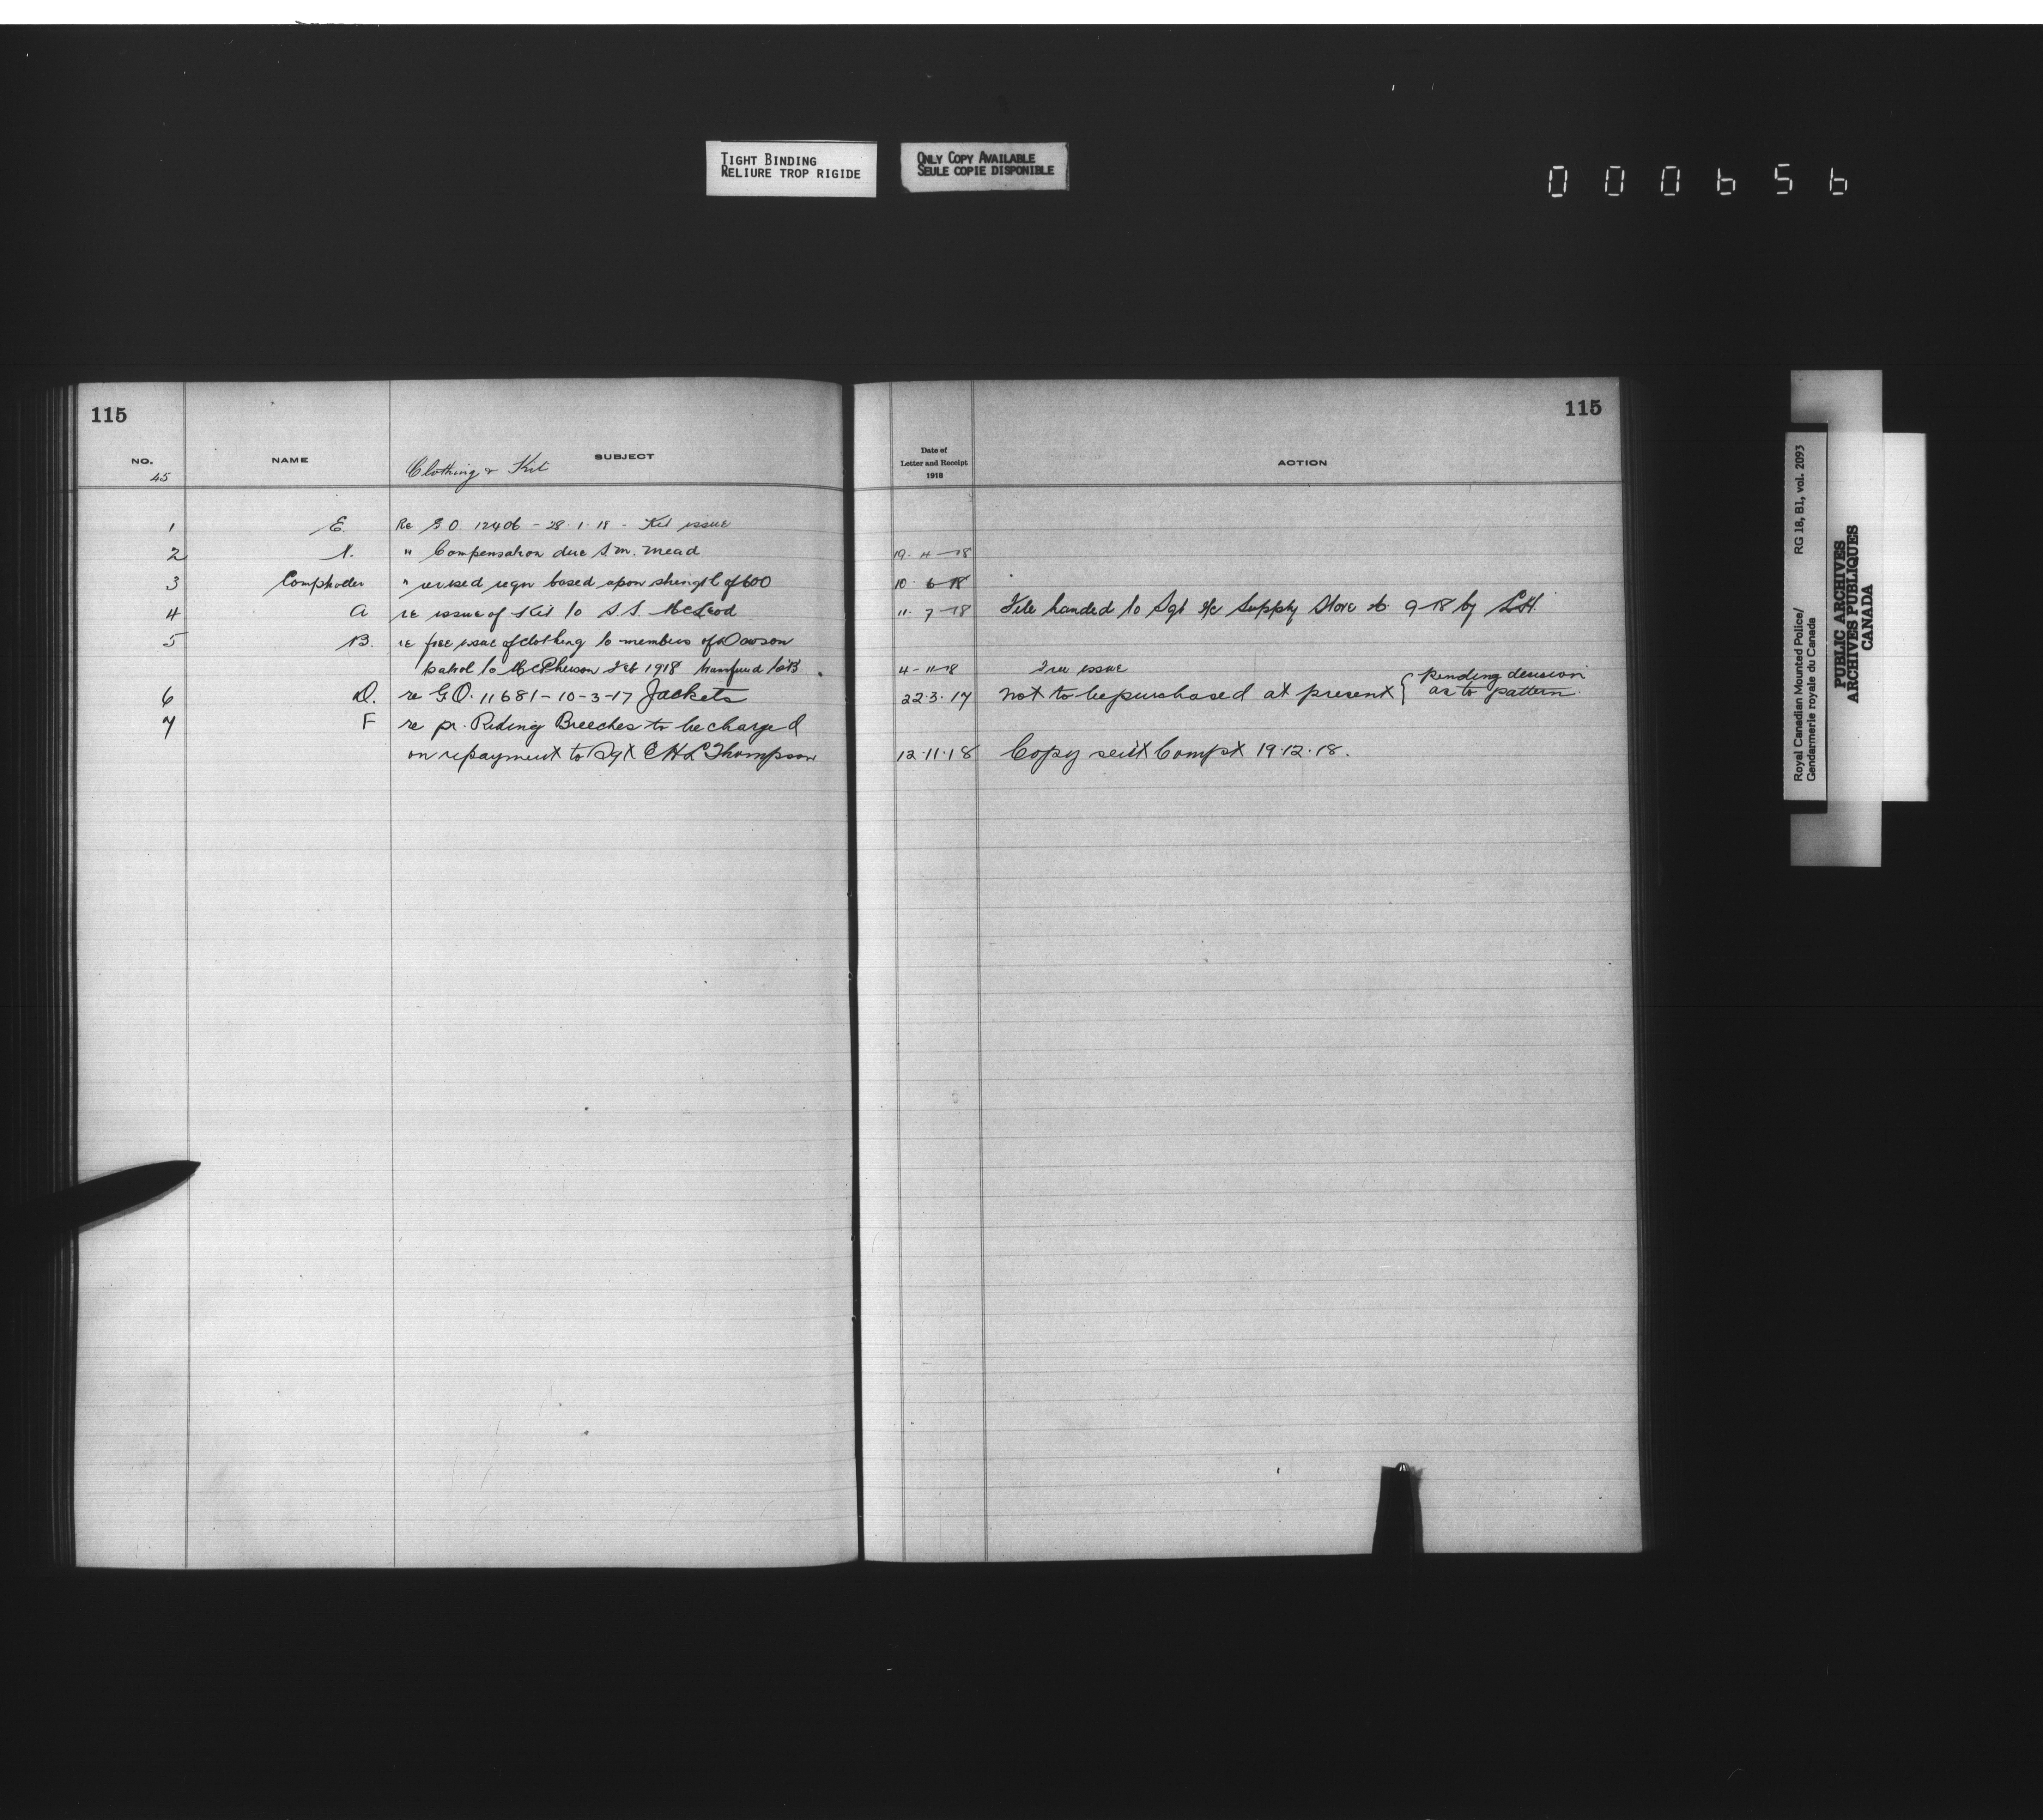 TIGHT BINDING
RELIURE TROP RIGIDE
ONLY COPY AVAILABLE
SEULE COPIE DISPONIBLE
000656
115
115
NO. NAME SUBJECT
45 Clothing & Kit
Date of
Letter and Receipt
1918
ACTION
1 E. Re G.O. 12406 - 28.1.18 - Kit issue
2 N. " Compensation due S.M. Mead 19-4-18
3 Comptroller " revised reqn based upon strength of 600 10-6-18
4 A re issue of Kit to S.S. McLeod 11-7-18 File handed to Sgt i/c Supply Store 9-18 by
5 B. re free issue of clothing to members of Dawson
patrol to McPherson Feb 1918 4-11-18 Free issue
6 D. re G.O. 11681-10-3-17 Jackets 22.3.17 not to be purchased at present { pending decision
as to pattern.
7 F re pr. Riding Breeches to be charged
on repayment to Sgt E H L Thompson 12.11.18 Copy sent Compt 19.12.18.
Royal Canadian Mounted Police/ RG 18, B1, vol. 2093
Gendarmerie royale du Canada
PUBLIC ARCHIVES
ARCHIVES PUBLIQUES
CANADA